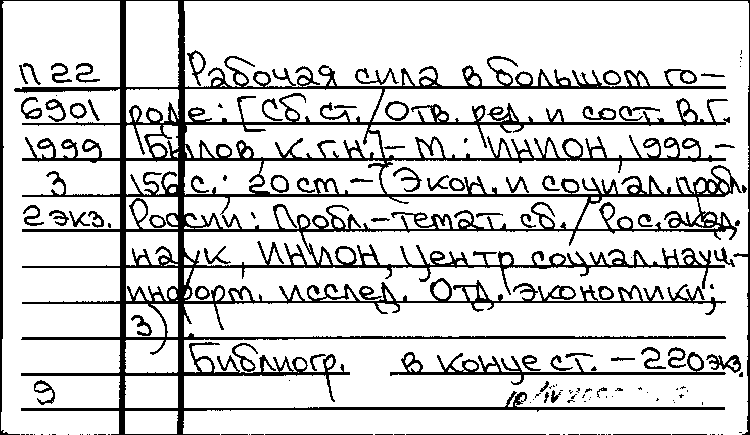 П 22 Рабочая сила в большом го-
6901 роде: [Сб. ст. / Отв. ред. и сост. В.Г.
1999 Былов, к.г.н.]. - М.: ИНИОН, 1999. -
3 156 с.; 20 см. - (Экон. и социал. пробл.
2 экз. России: Пробл.-темат. сб. / Рос. акад.
наук, ИНИОН, Центр социал. науч.-
информ. исслед. Отд. экономики;
3).
Библиогр. в конце ст. - 220 экз.
9